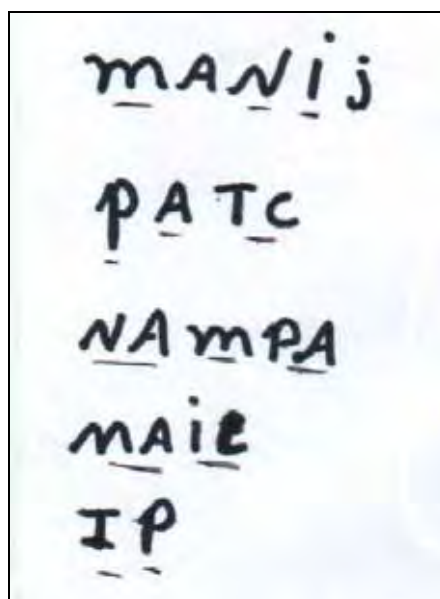 mANij
pATC
NAmPA
mAie
IP